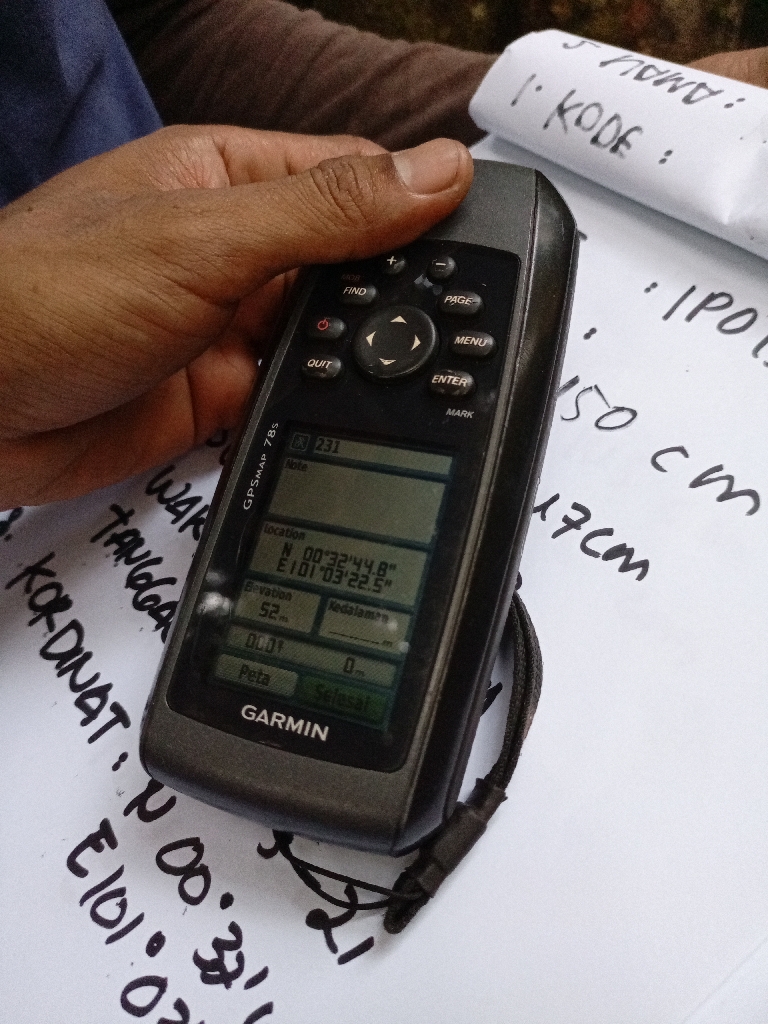 5 NAMA :
1. KODE :
: 1 POT
:
150 cm
17 cm
WAK
TANGGA
KORDINAT : N 00.32'
E101.03
21
+
−
MOB
FIND
PAGE
QUIT
MENU
ENTER
MARK
GPSMAP 78s
231
Note
Location
N 00°32'44.8"
E101°03'22.5"
Elevation
Kedalaman
52m
_____m
000°
0m
Peta
Selesai
GARMIN